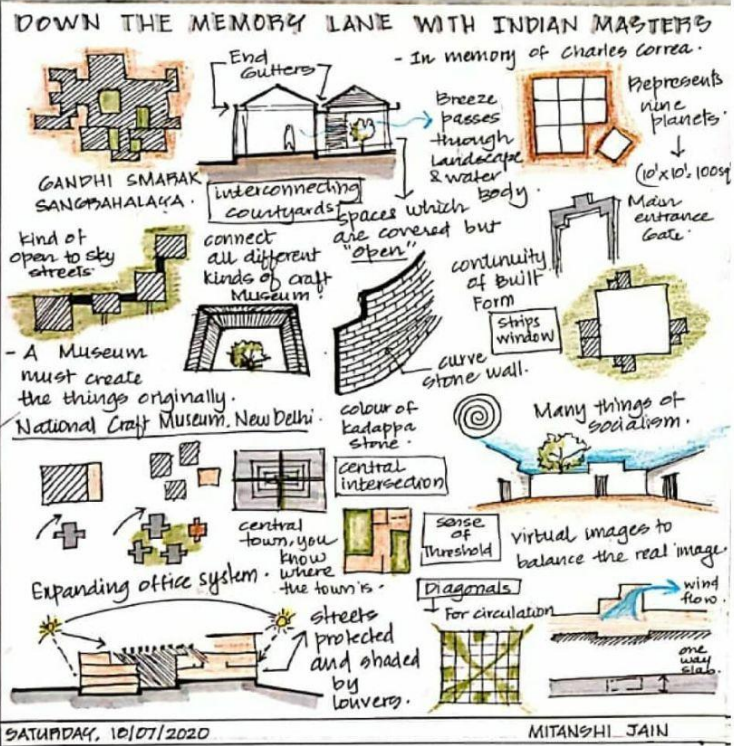 DOWN THE MEMORY LANE WITH INDIAN MASTERS
- In memory of Charles Correa.
End
Gutters
Breeze
passes
through
landscape
& water
body.
Represents
nine
planets.
(10'x10'=100sq
GANDHI SMARAK
SANGRAHALAYA.
interconnecting
courtyards
spaces which
are covered but
"open"
Main
entrance
Gate.
kind of
open to sky
streets.
connect
all different
kinds of craft
Museum.
continuity
of Built
Form
Strips
window
- A Museum
must create
the things originally.
National Craft Museum, New Delhi.
curve
stone wall.
colour of
kadappa
stone.
Many things of
socialism.
central
intersection
central
town, you
know
where
the town is.
sense
of
Threshold
virtual images to
balance the real image.
Expanding office system.
Diagonals
For circulation
wind
flow.
streets
protected
and shaded
by
louvers.
one
way
slab.
SATURDAY, 18/07/2020
MITANSHI JAIN